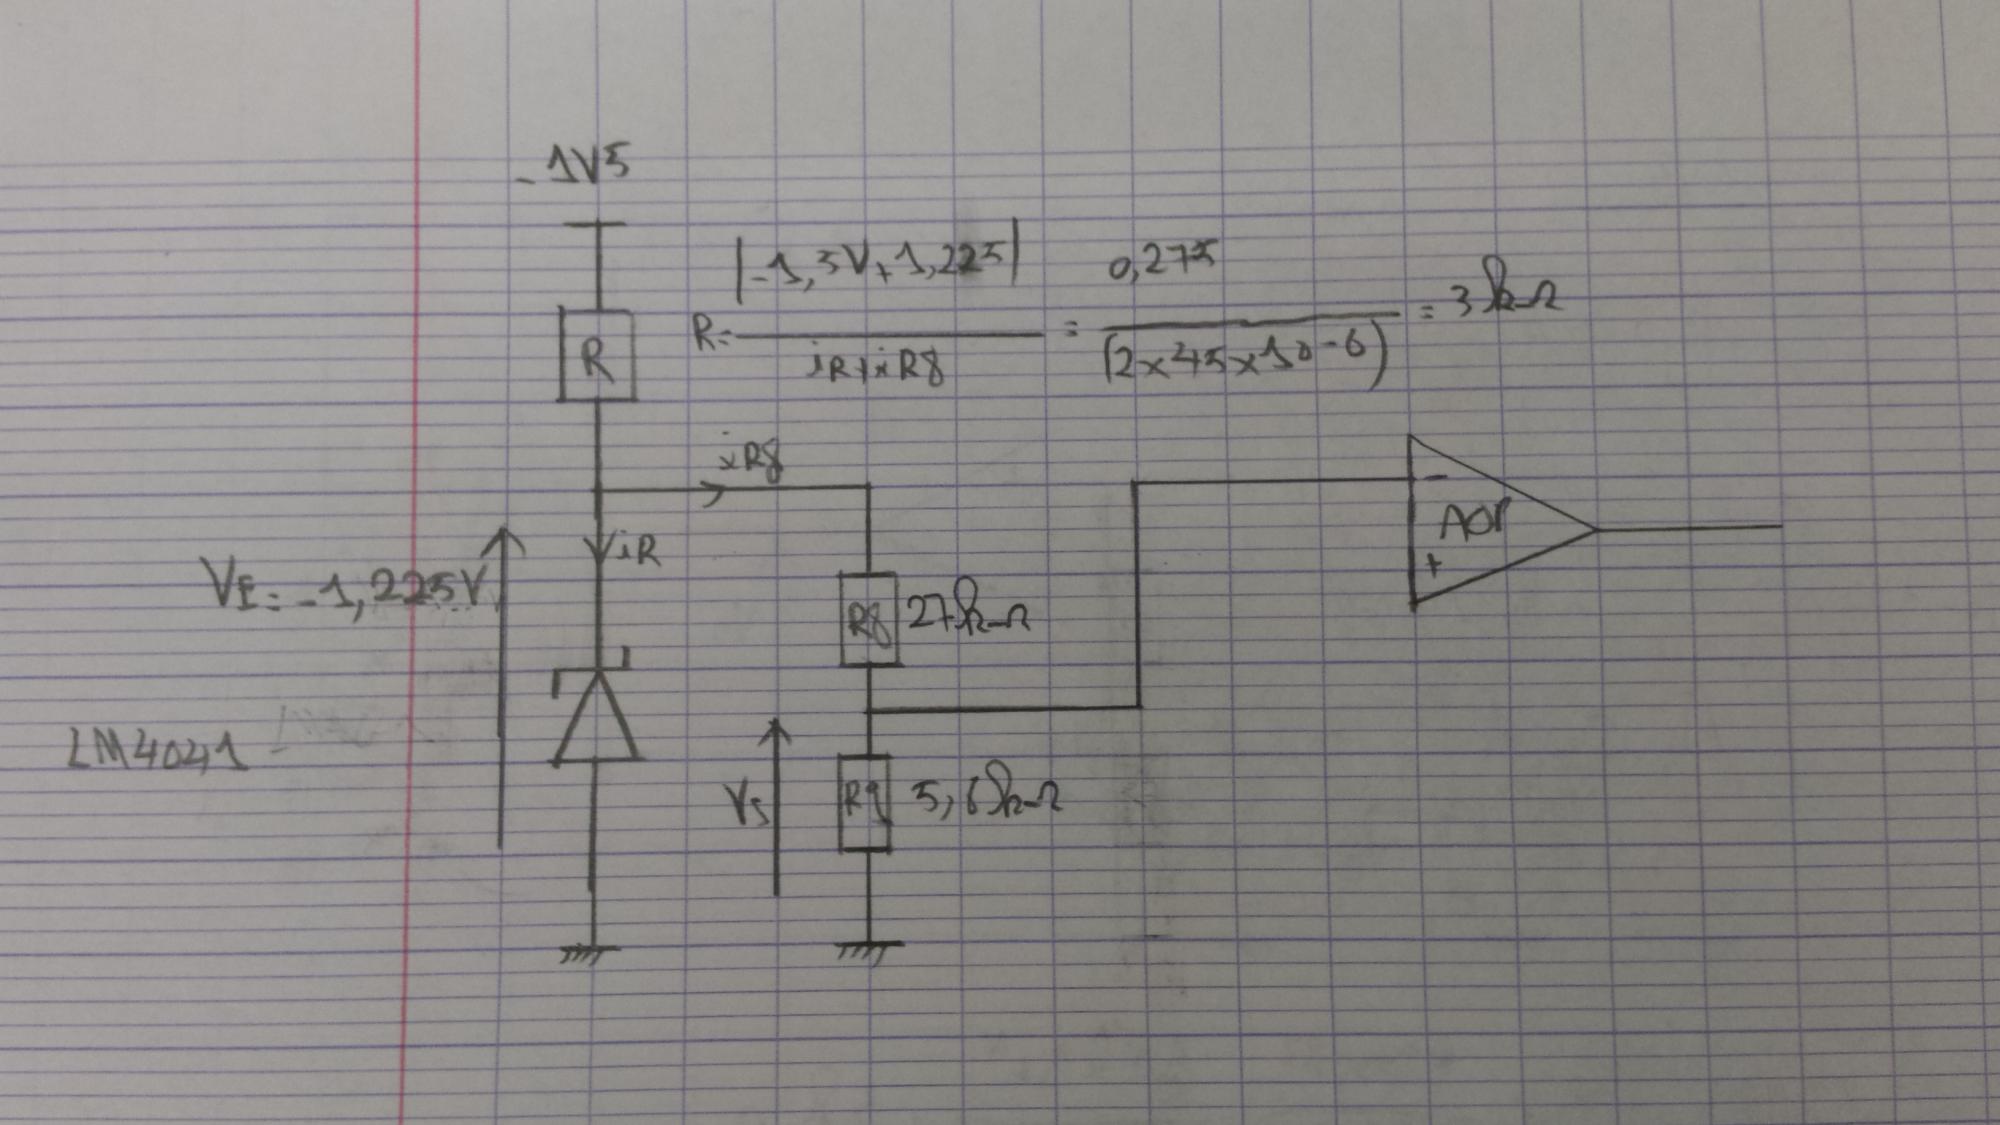 - 1V5
R = |-1,5V+1,225| / iR+iR8 = 0,275 / (2x45x10-6) = 3kΩ
R
iR8
iR
VE = -1,225V
-
AOP
+
R8 27kΩ
LM4041
VS
R9 5,6kΩ